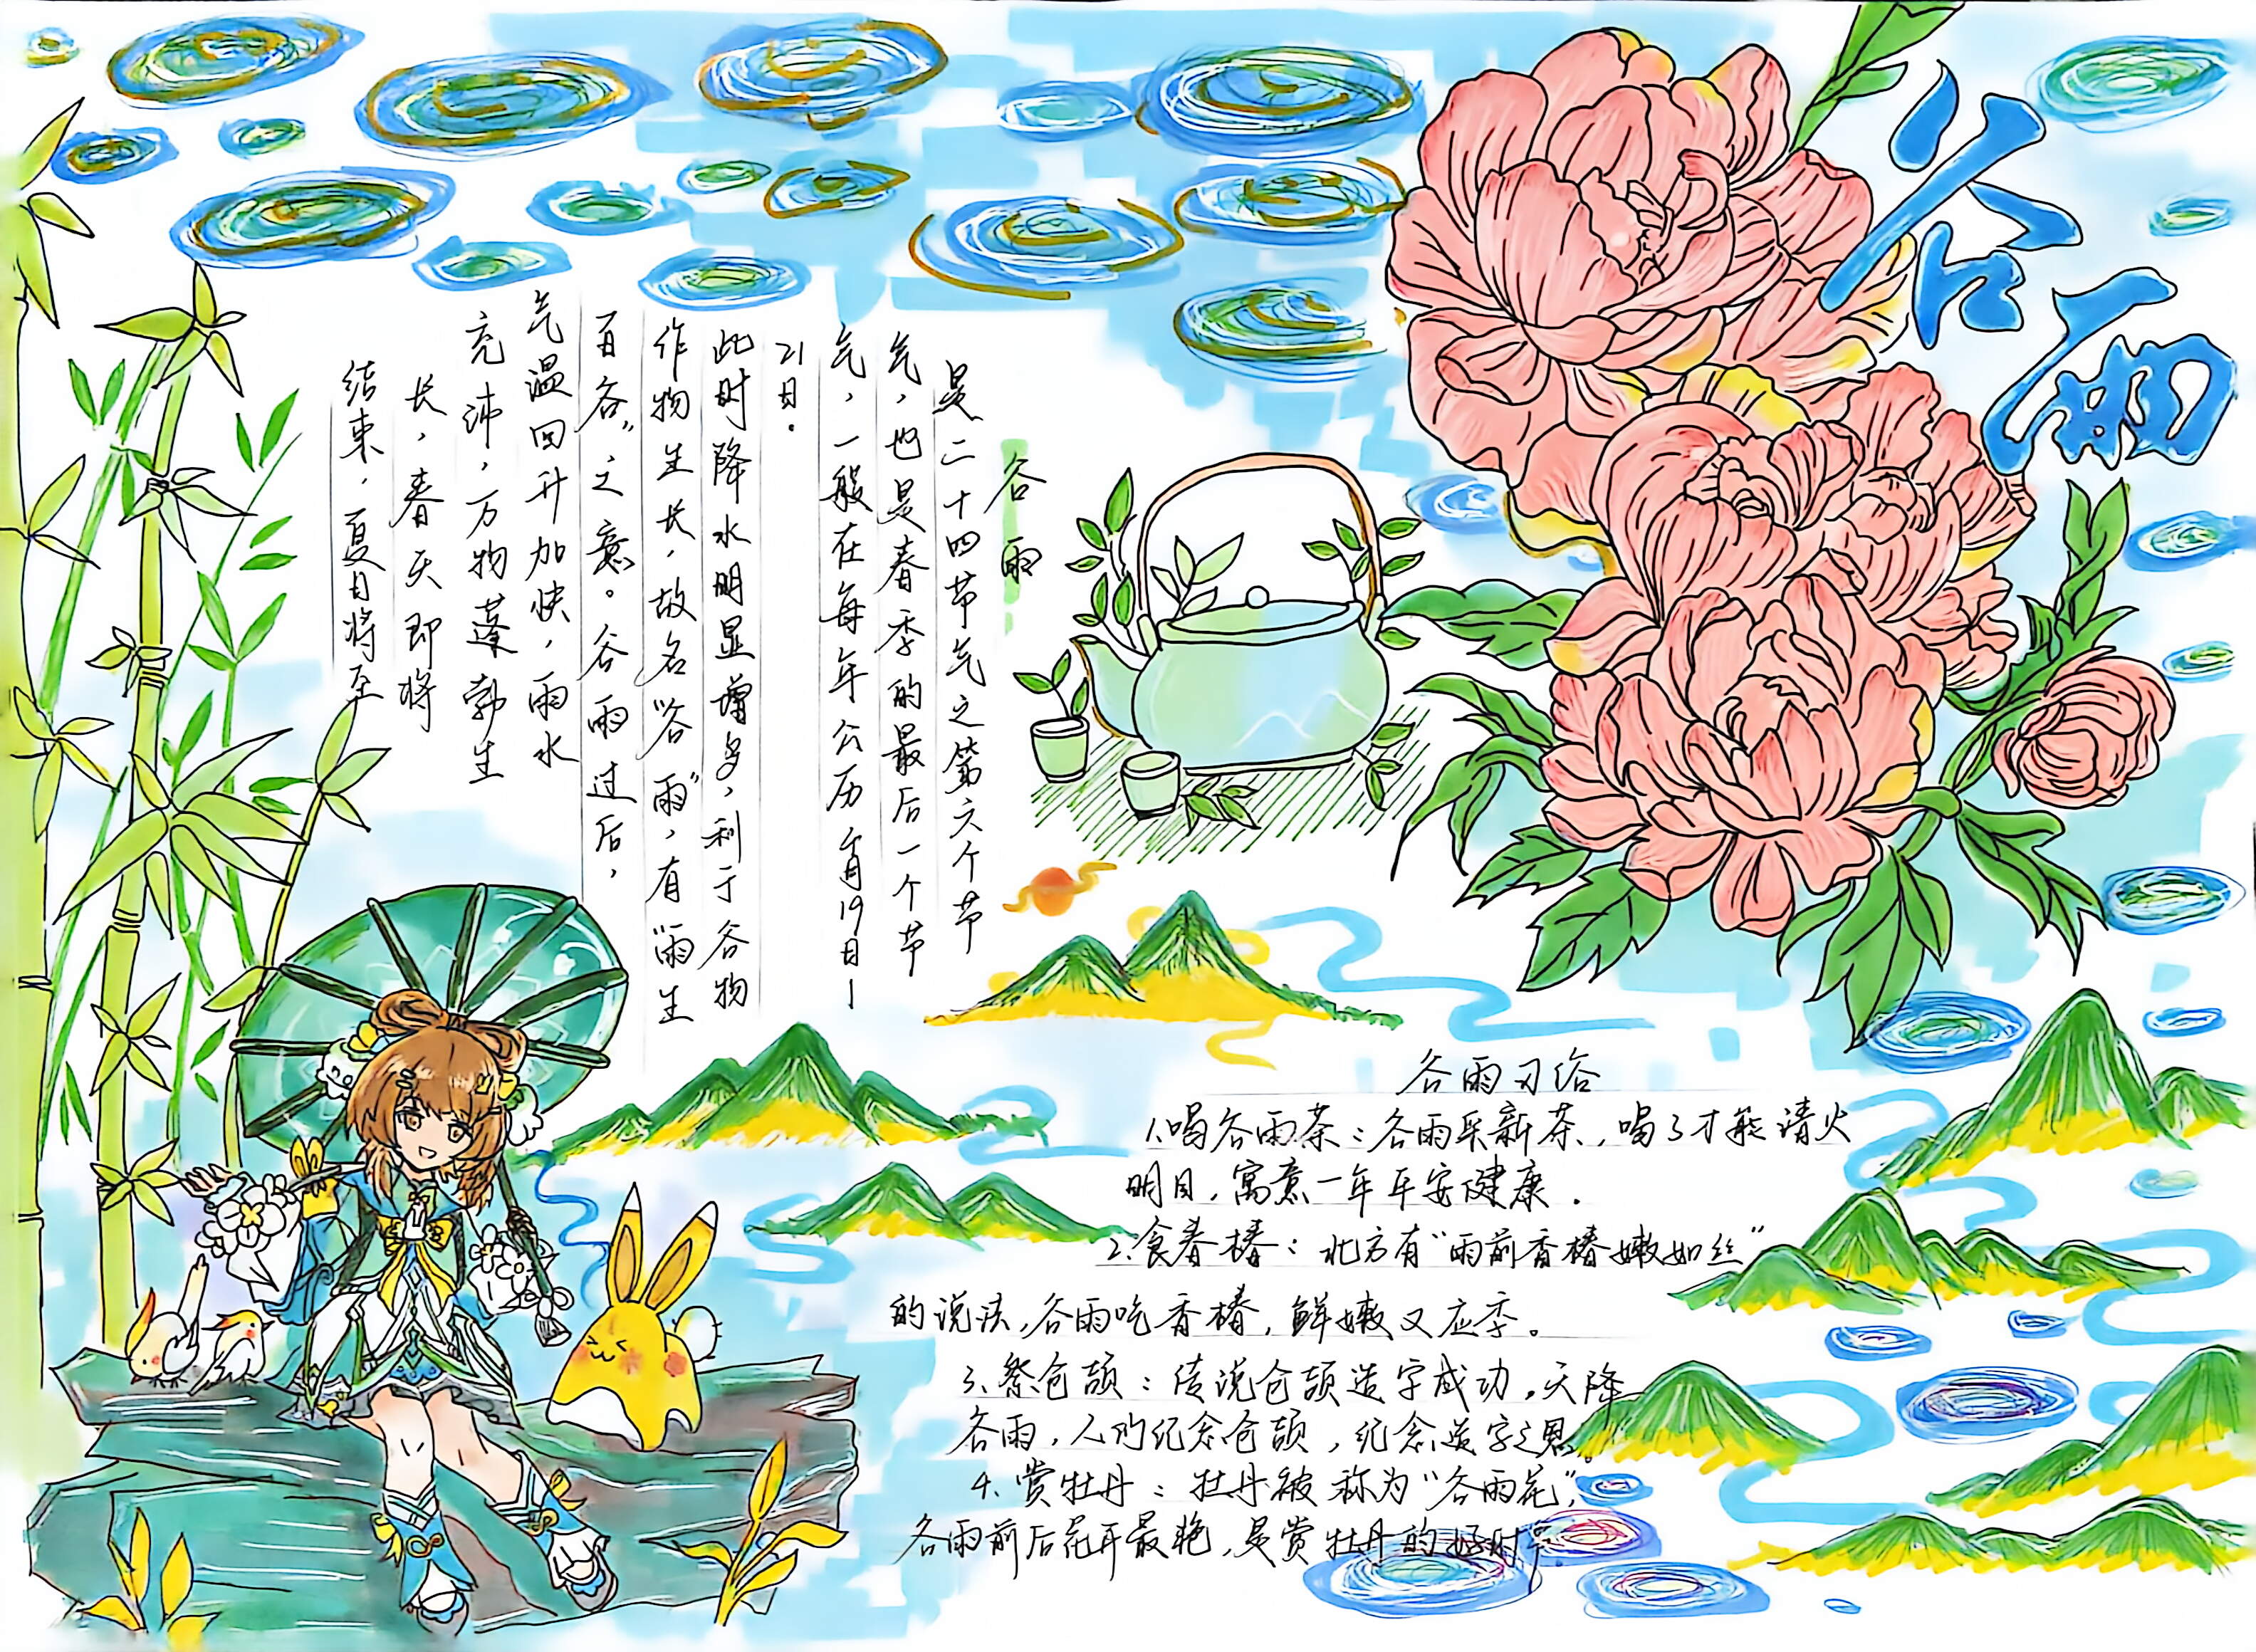 谷雨
谷雨
是二十四节气之第六个节
气，也是春季的最后一个节
气，一般在每年公历4月19日—
21日.
此时降水明显增多，利于谷物
作物生长，故名“谷雨”，有“雨生
百谷”，之意。谷雨过后，
气温回升加快，雨水
充沛，万物蓬勃生
长，春天即将
结束，夏日将至
谷雨习俗
1.喝谷雨茶：谷雨采新茶，喝了才能清火
明目，寓意一年平安健康．
2.食春椿：北方有“雨前香椿嫩如丝”
的说法，谷雨吃香椿，鲜嫩又应季。
3.祭仓颉：传说仓颉造字成功，天降
谷雨，人们纪念仓颉，纪念造字之恩。
4.赏牡丹：牡丹被称为“谷雨花”，
谷雨前后花开最艳，是赏牡丹的好时